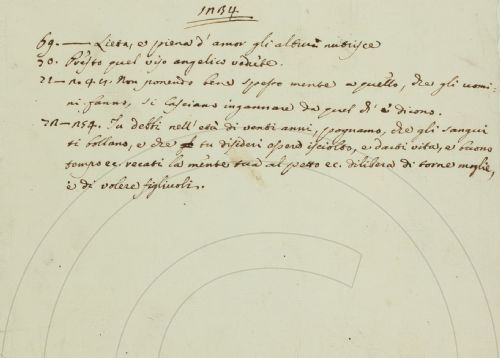 1834
69. — Lieta, e piena d'amor gli altrui nutrisce
70. Presto quel viso angelico vedrete.
71 — no 4 4. Non ponendo bene spesso mente a quello, che gli uomi-
ni fanno, si lasciano ingannare da quel ch'è dicono.
72 — 54. Tu debbi nell'età di venti anni, pognamo, che gli sangui
ti bollano, e che tu disideri essere isciolto, e darti vita, e buono
tempo ec. recati la mente tua al petto ec. dilibera di torre moglie,
e di volere figliuoli.